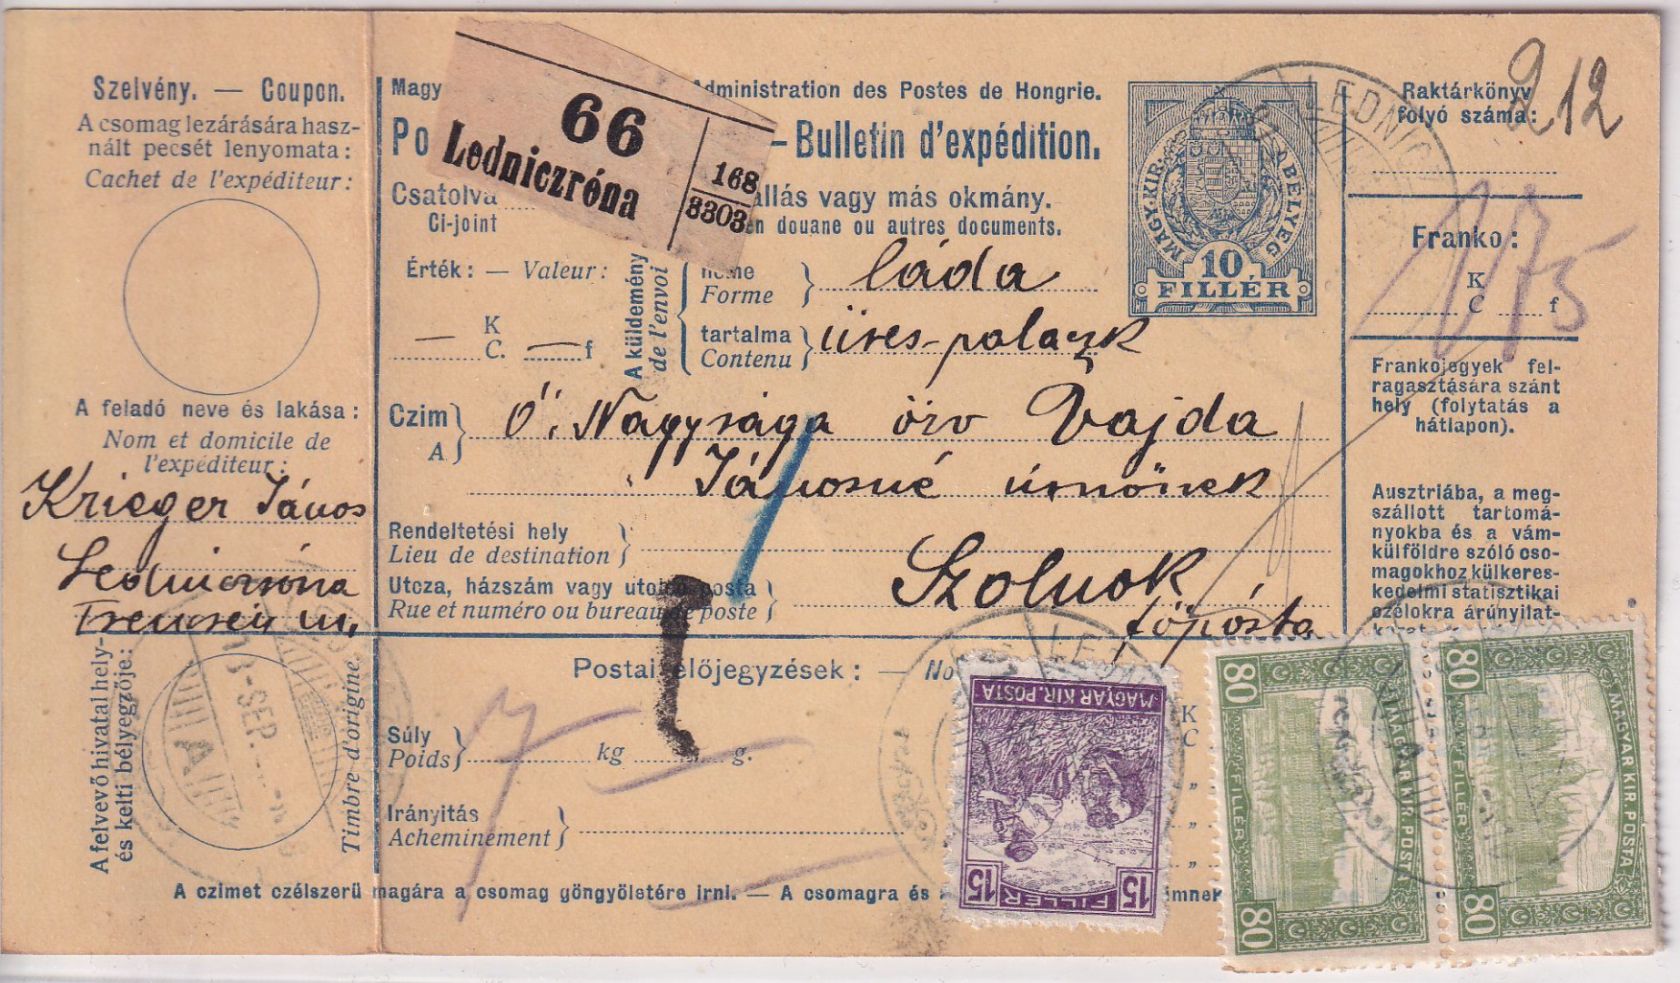 Szelvény. — Coupon.
A csomag lezárására hasz-
nált pecsét lenyomata:
Cachet de l'expéditeur:
A feladó neve és lakása:
Nom et domicile de
l'expéditeur:
Krieger János
Lednicróna
Trencsén m.
A felvevő hivatal hely-
és kelti bélyegzője:
Timbre d'origine.
Magy
Administration des Postes de Hongrie.
Po
— Bulletin d'expédition.
66
Ledniczróna
168
3303
Csatolva
állás vagy más okmány.
Ci-joint
en douane ou autres documents.
MAGY. KIR. BÉLYEG
10
FILLÉR
LEDNIC
Raktárkönyv
folyó száma:
212
Franko:
K
C
f
175
Érték: — Valeur:
— K — f
C.
A küldemény
de l'envoi
neme
Forme
láda
tartalma
Contenu
üres-palaczk
Czim
A
Ő. Nagysága özv Vajda
Jánosné úrnőnek
Rendeltetési hely
Lieu de destination
Szolnok
Utcza, házszám vagy utolsó posta
Rue et numéro ou bureau de poste
főpósta
Frankojegyek fel-
ragasztására szánt
hely (folytatás a
hátlapon).
Ausztriába, a meg-
szállott tartomá-
nyokba és a vám-
külföldre szóló cso-
magokhoz külkeres-
kedelmi statisztikai
czélokra árúnyilat-
Postai előjegyzések: — No
Súly
Poids
7
kg
g.
Irányitás
Acheminement
K
C
"
"
"
A czimet czélszerű magára a csomag göngyöletére irni. — A csomagra és
18 SEP.
A
LED
MAGYAR KIR. POSTA
15 FILLÉR 15
80 MAGYAR KIR. POSTA
FILLÉR 80
80 MAGYAR KIR. POSTA
FILLÉR 80